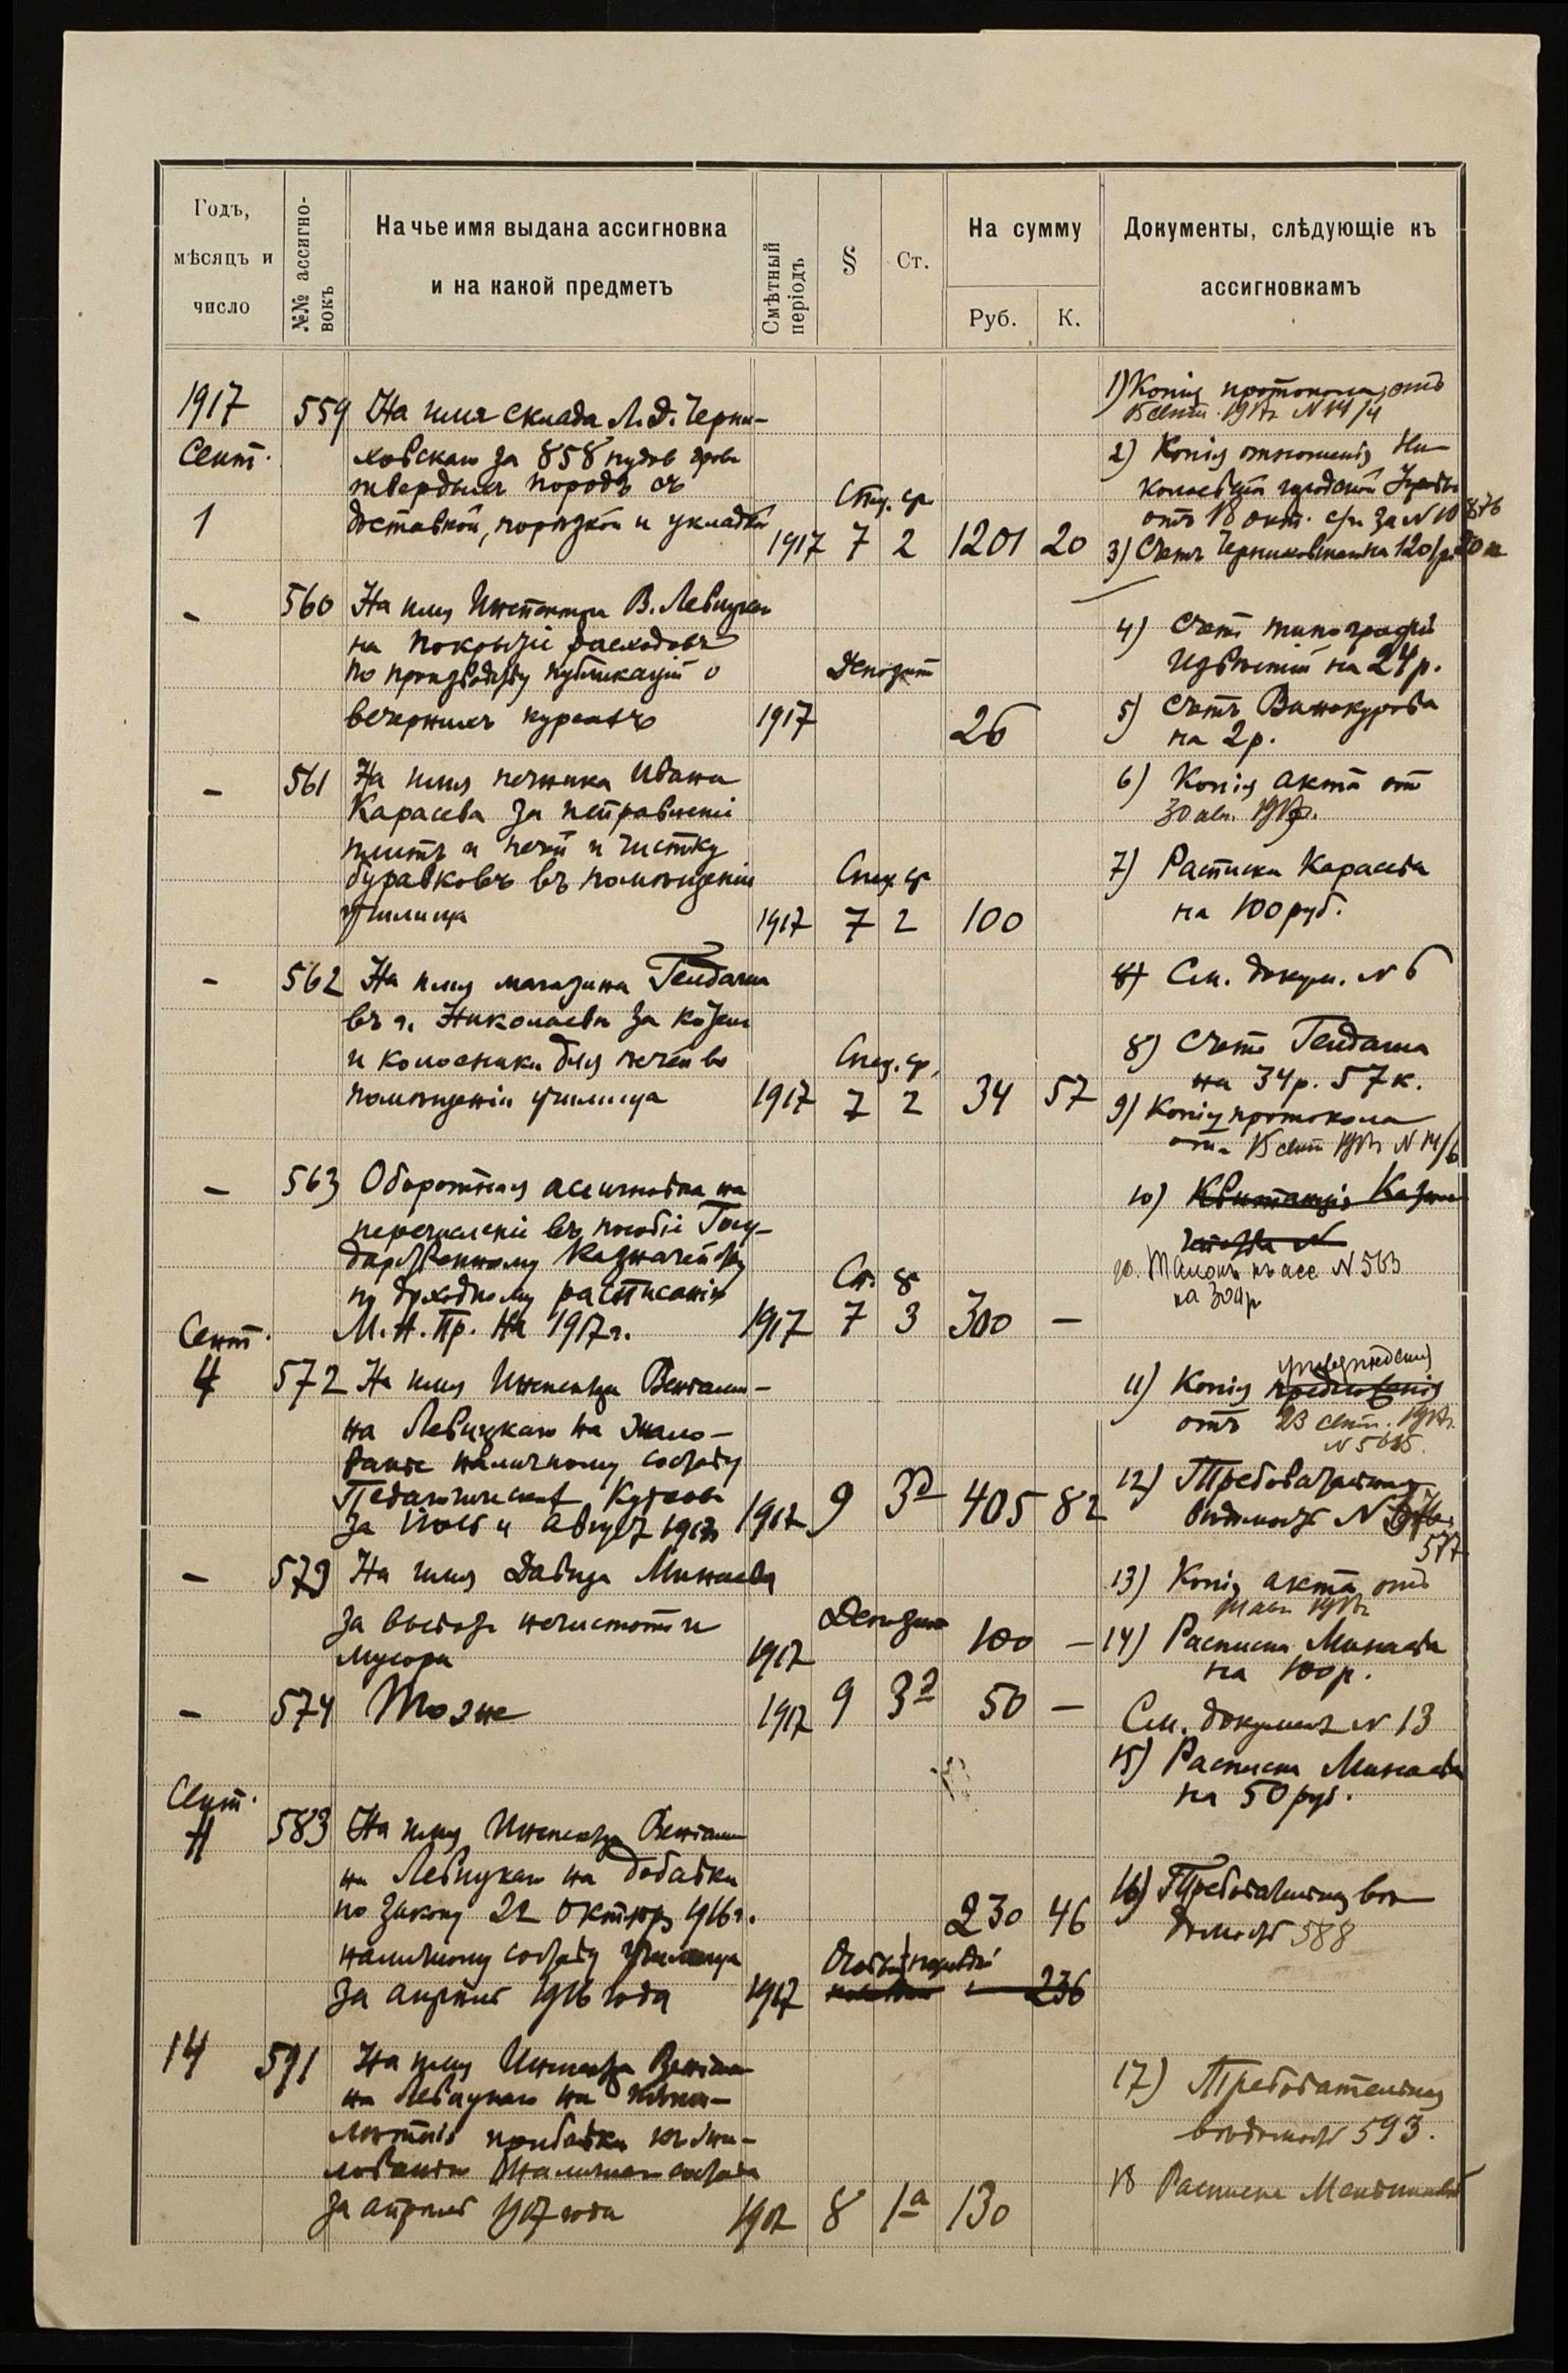 Годъ,
мѣсяцъ и
число
№№ ассигно-
вокъ
На чье имя выдана ассигновка
и на какой предметъ
Смѣтный
періодъ
§
Ст.
На сумму
Руб.
К.
Документы, слѣдующіе къ
ассигновкамъ
1917
Сент.
1
559
На имя склада Л. Д. Черни-
ховскаго за 858 пудов дровъ
твердыхъ породъ съ
доставкой, порѣзкой и укладкой
1917
Спец. ср.
7
2
1201
20
1) Копія протокола отъ
15 сент. 1917г. N 14/4
2) Копія отношенія Ни-
колаевской городской Управы
отъ 18 окт. с/г. за N 10876
3) Счетъ Черниховскаго на 1201р. 20 к
-
560
На имя Инспектора В. Левицкаго
на покрытіе расходовъ
по производству публикацій о
вечернихъ курсахъ
1917
Депозит
26
4) Счетъ типографіи
Извѣстій на 24р.
5) Счетъ Винокурова
на 2р.
-
561
На имя печника Ивана
Карасева за исправленіе
плитъ и печей и чистку
буравковъ въ помѣщеніи
училища
1917
Спец. ср
7
2
100
6) Копія акта от
30 авг. 1917г.
7) Расписка Карасева
на 100 руб.
-
562
На имя магазина
въ г. Николаевѣ за
и колосники для печей во
помѣщеніи училища
1917
Спец. ср.
7
2
34
57
8) См. докум. N 6
8) Счетъ
на 34р. 57к.
9) Копія протокола
отъ 15 сент 1917г N 14/6
-
563
Оборотная ассигновка на
перечисленіе въ пособіе Госу-
дарственному Казначейству
по доходному расписанію
М. Н. Пр. на 1917г.
1917
7
3
300
—
10) Квитанція Казна-
чейства N
10. Талонъ къ асс N 563
на 300р
Сент.
4
572
На имя Инспектора Веніами-
на Левицкаго на жало-
ванье наличному составу
Педагогическ. Курсовъ
за Іюль и Августъ 1917г
1917
9
3
405
82
11) Копія предписанія
отъ 23 сент. 1917г.
12) Требовательная
вѣдомость N
577
-
573
На имя Давида Минаева
за вывозъ нечистотъ и
мусора
1917
Депозит
100
—
13) Копія акта отъ
авг 1917г
14) Расписка Минаева
на 100р.
-
574
Тоже
1917
9
3
50
—
См. документ N 13
15) Расписка Минаева
на 50 руб.
Сент.
583
На имя Инспектора Веніами
на Левицкаго на добавки
по закону 22 Октября 1916г.
наличному составу училища
за апрѣль 1916 года
1917
230
46
236
16) Требовательная вѣ-
домость 588
14
591
На имя Инспектора Веніами
на Левицкаго на
прибавки къ жа-
лованію наличнаго состава
за апрѣль 1917 года
1917
8
1а
130
17) Требовательная
вѣдомость 593.
18 Расписка